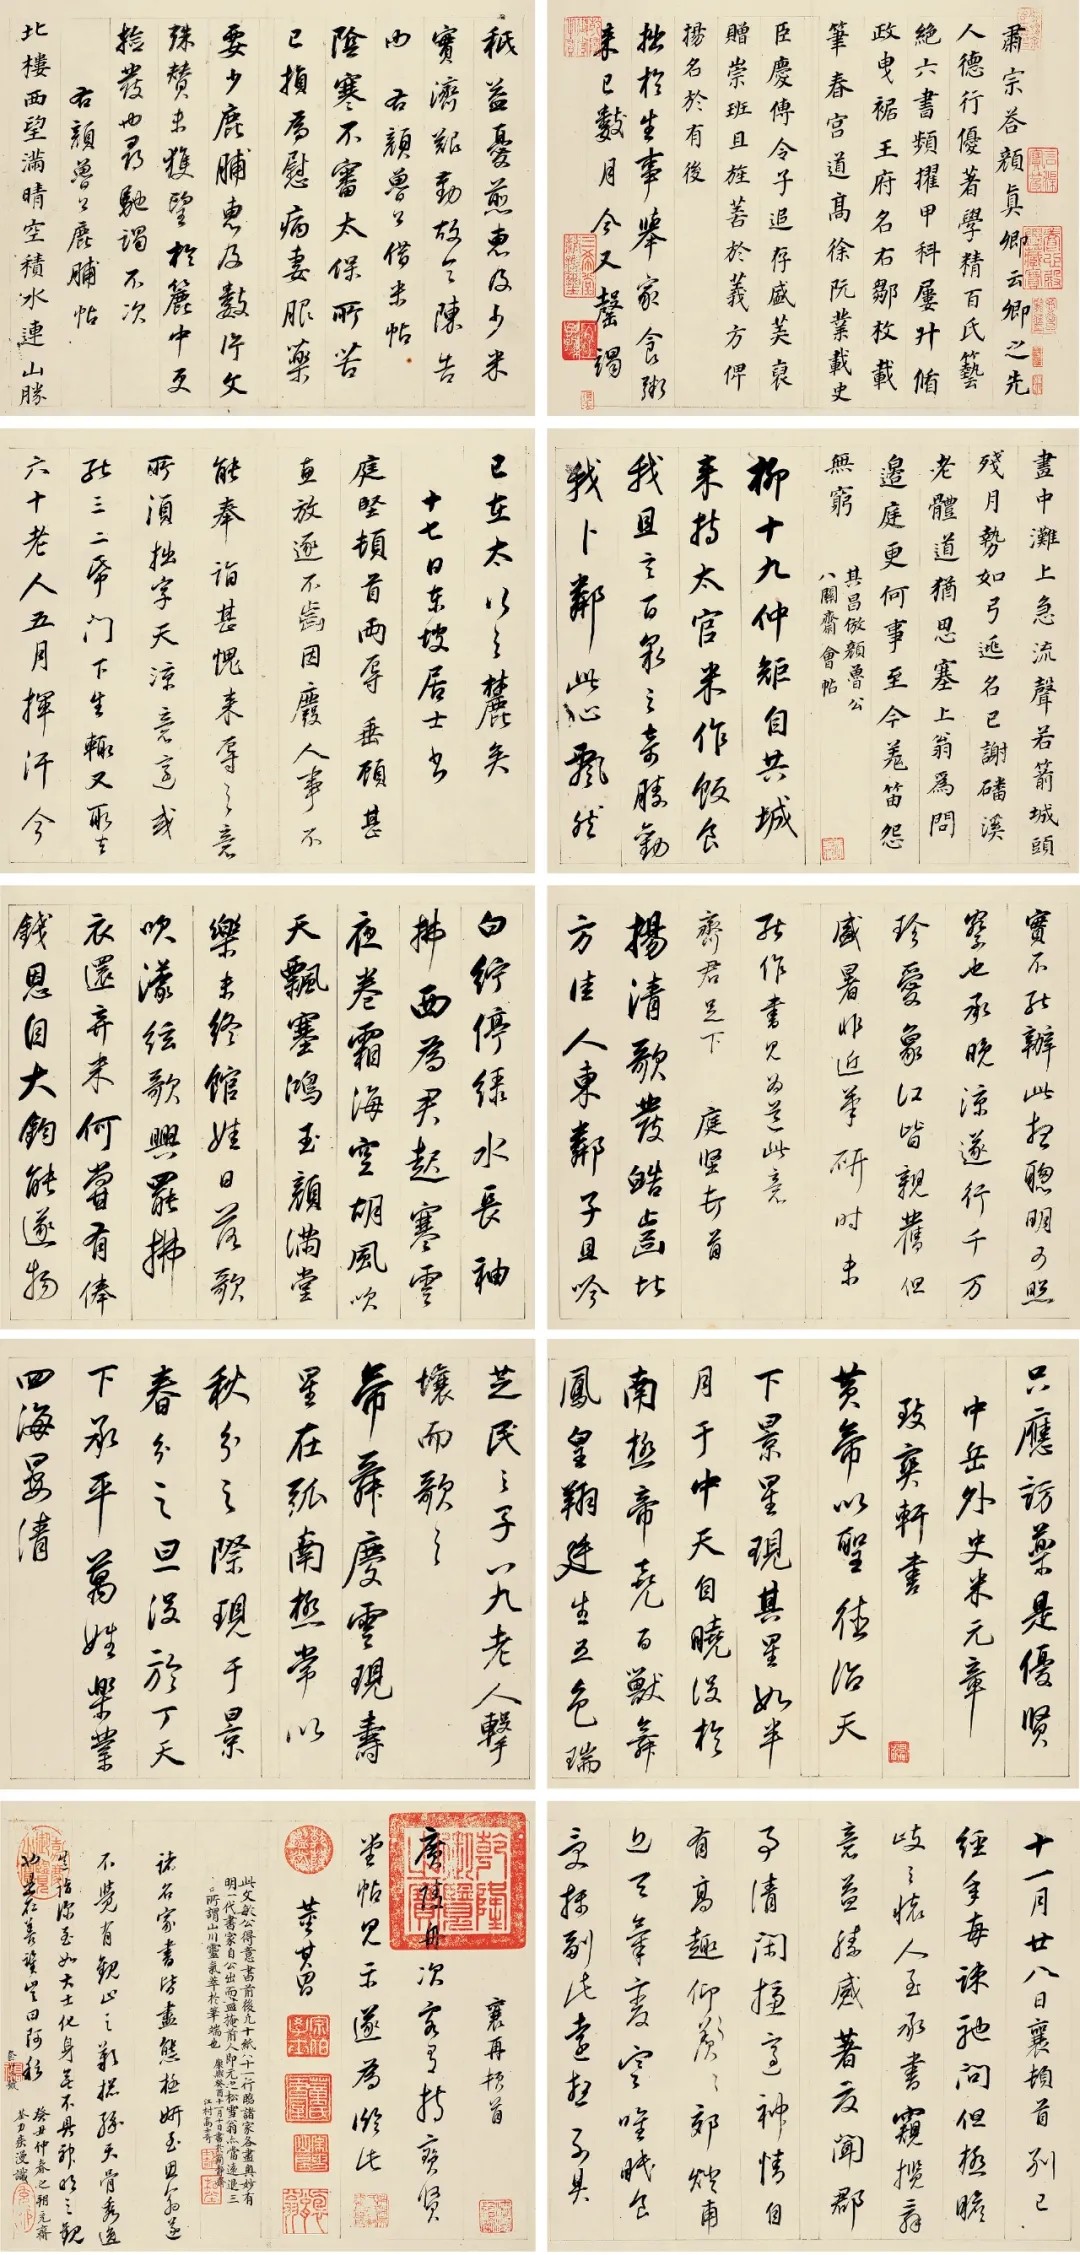 肅宗答顏眞卿云卿之先
人德行優著學精百氏藝
絶六書頻擢甲科屢升脩
政曳裾王府名右鄒枚載
筆春宮道高徐阮業載史
臣慶傳令子追存盛美裒
贈崇班且旌善於義方俾
揚名於有後
拙於生事舉家食粥
来已數月今又罄竭
秖益憂煎惠及少米
實濟艱勤故令陳告
也 右顏魯公借米帖
陰寒不審太保所苦
已損為慰病妻服藥
要少鹿脯惠及數片文
殊贊未獲望於簏中更
拾發也尋馳謁不次
右顏魯公鹿脯帖
北樓西望滿晴空積水連山勝
畫中灘上急流聲若箭城頭
殘月勢如弓逃名已謝磻溪
老體道猶思塞上翁為問
邉庭更何事至今羗笛怨
無窮
其昌倣顏魯公
八關齋會帖
柳十九仲矩自共城
来持太官米作飯食
我且言百泉之奇勝勸
我卜鄰此心飄然
已在太行之麓矣
十七日東坡居士書
庭堅頓首兩辱垂顧甚
惠放逐不齒因廢人事不
能奉詣甚愧来辱之意
所須拙字天涼意適或
能三二紙門下生輙又取去
六十老人五月揮汗今
實不能辦此想聰明可照
察也承晚涼遂行千万
珍愛象江皆親舊但
盛暑非近筆研时未
能作書見為道此意
齊君足下 庭堅頓首
揚清歌發皓齒北
方佳人東鄰子且吟
白紵停綠水長袖
拂面為君起寒雲
夜卷霜海空胡風吹
天飄塞鴻玉顏滿堂
樂未終館娃日落歌
吹濛絃歌興罷拂
衣還棄米何嘗有俸
錢恩自大鈞能遂物
只應訪藥是優賢
中岳外史米元章
致爽軒書
黄帝以聖德治天
下景星現其星如半
月于中天自曉没於
南極帝堯百獸舞
鳳皇翔廷生五色瑞
芝民之子八九老人擊
壤而歌之
帝舜慶雲現壽
星在弧南極常以
秋分之際現于景
春分之旦没於丁天
下承平萬姓樂業
四海晏清
十一月廿八日襄頓首別已
經年每疎馳問但極瞻
岐之懐人至承書窺攬辭
意益臻盛著及聞郡
事清閑攝意神情自
有高趣仰羨〻郊燧甫
近天氣變寒唯眠食
副此遠想不具
襄再頓首
廣陵舟次客有持寶賢
堂帖見示遂為臨此
董其昌
此文敏公得意書前後九十紙八十一行臨諸家各盡奥妙有
明一代書家自公出而盡掩前人即元之松雪翁亦當遜三
所謂山川靈氣萃於筆端也
諸名家書皆盡態極妍至思翁遂
不覺有觀止之歎
癸丑仲春之朔